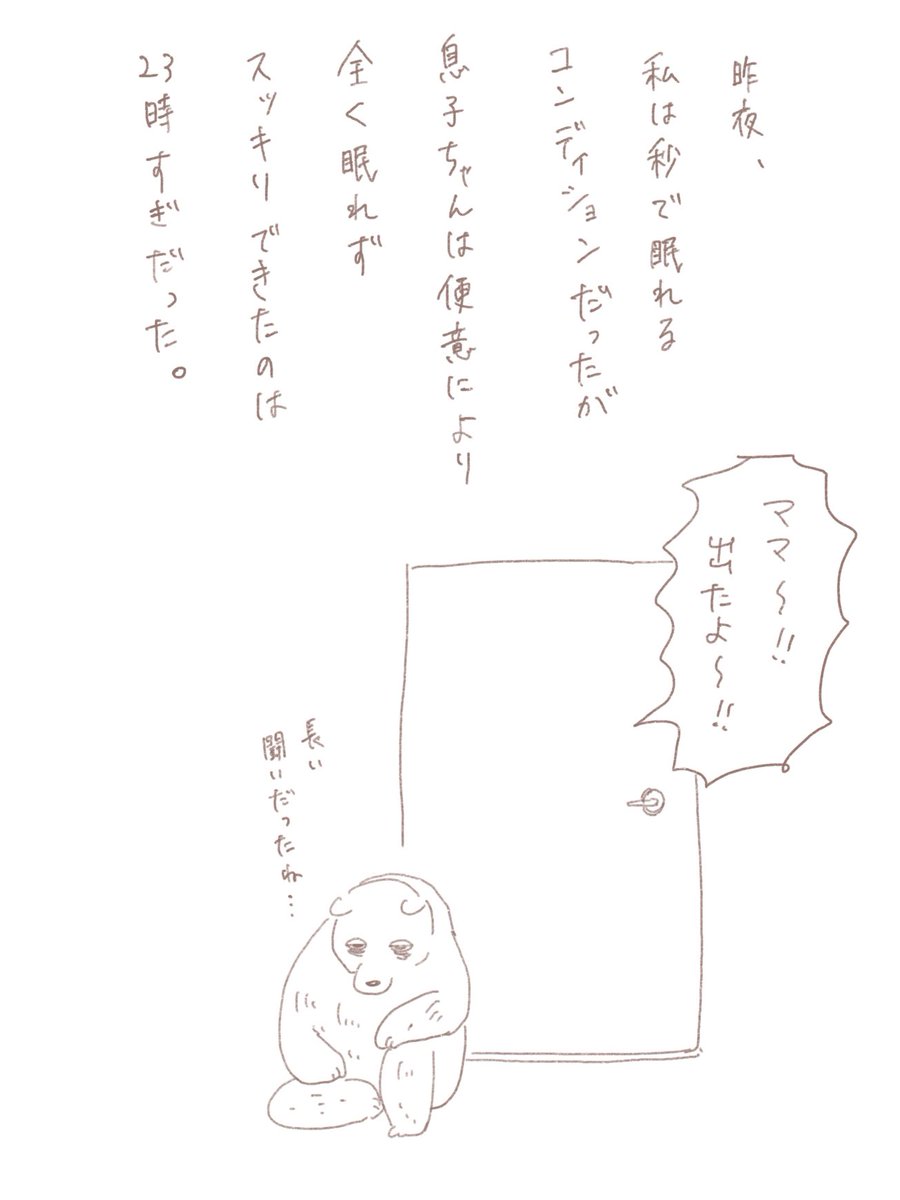 昨夜、
私は秒で眠れる
コンディションだったが
息子ちゃんは便意により
全く眠れず
スッキリできたのは
23時すぎだった。
ママ〜!!
出たよ〜!!
長い
闘いだったね…